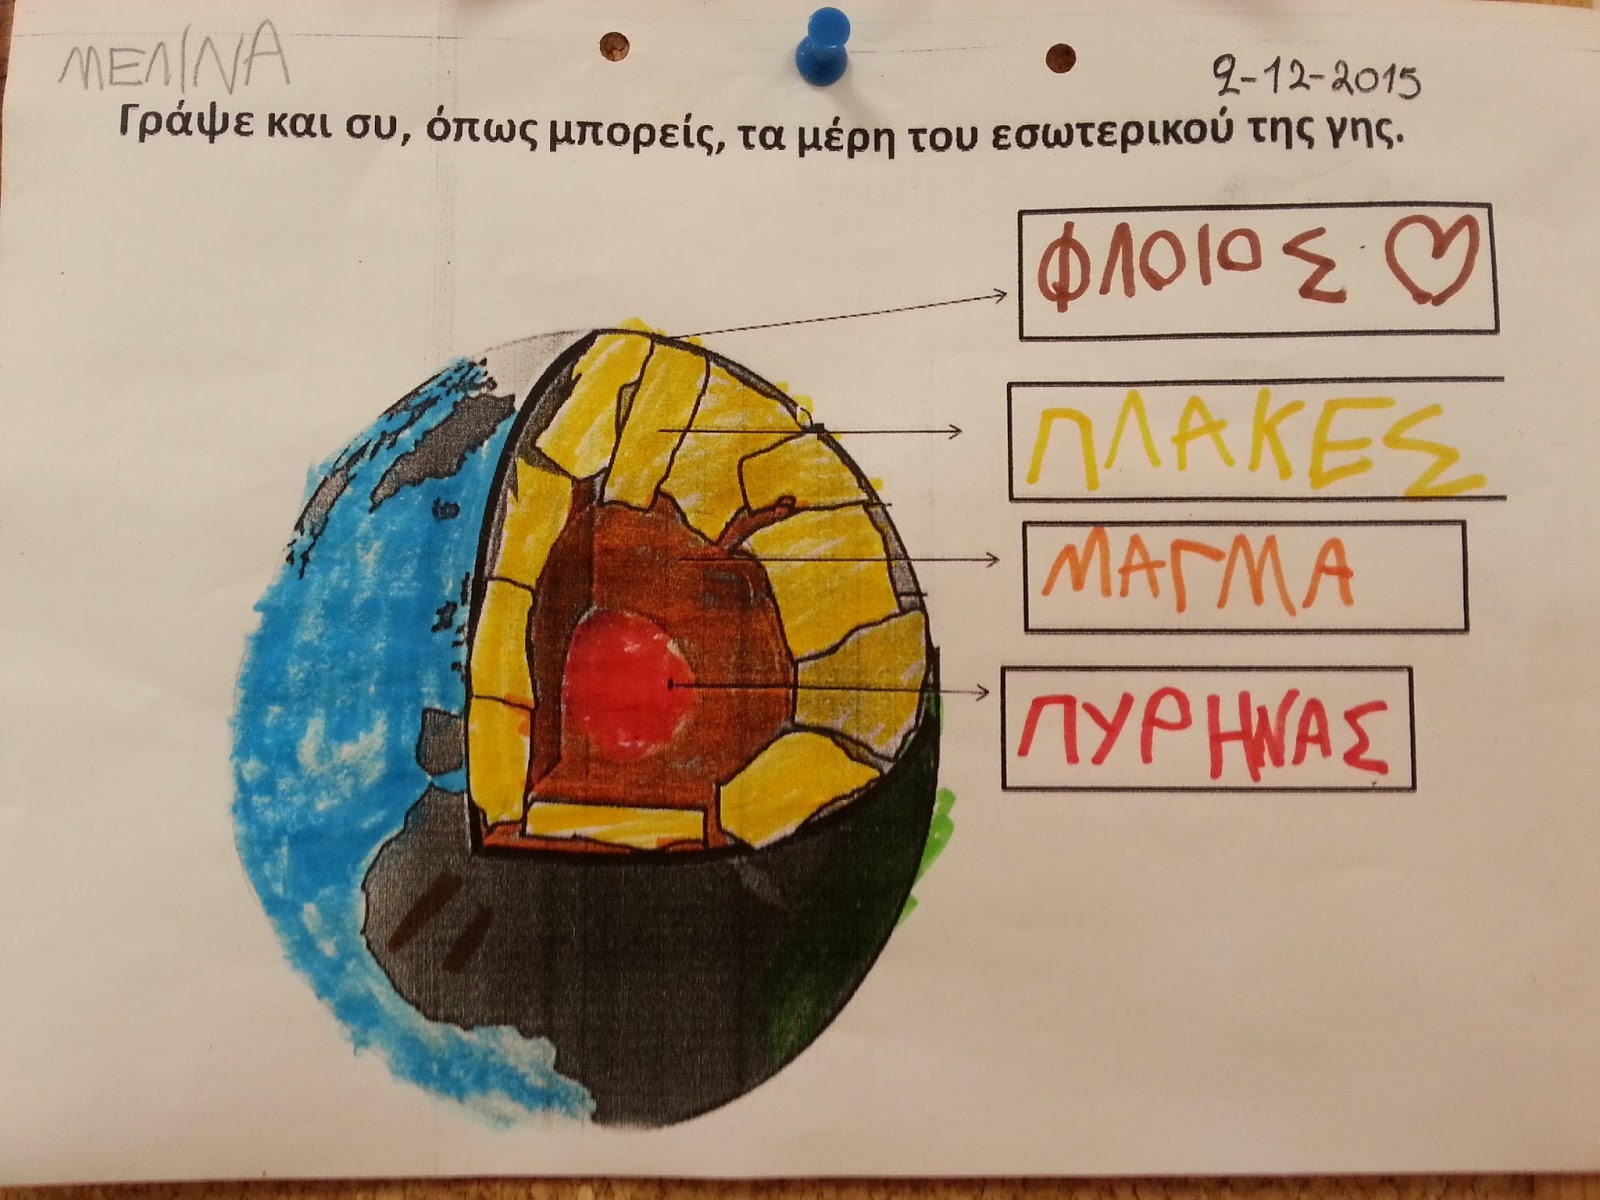 ΜΕΛΙΝΑ
9-12-2015
Γράψε και συ, όπως μπορείς, τα μέρη του εσωτερικού της γης.
ΦΛΟΙΟΣ
ΠΛΑΚΕΣ
ΜΑΓΜΑ
ΠΥΡΗΝΑΣ